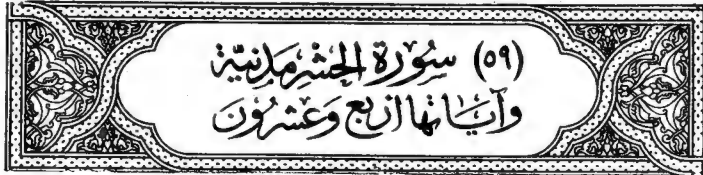 (٥٩) سُورَة الحَشْر مَدَنِيَّة
وَآيَاتهَا أَرْبَع وَعِشْرُونَ